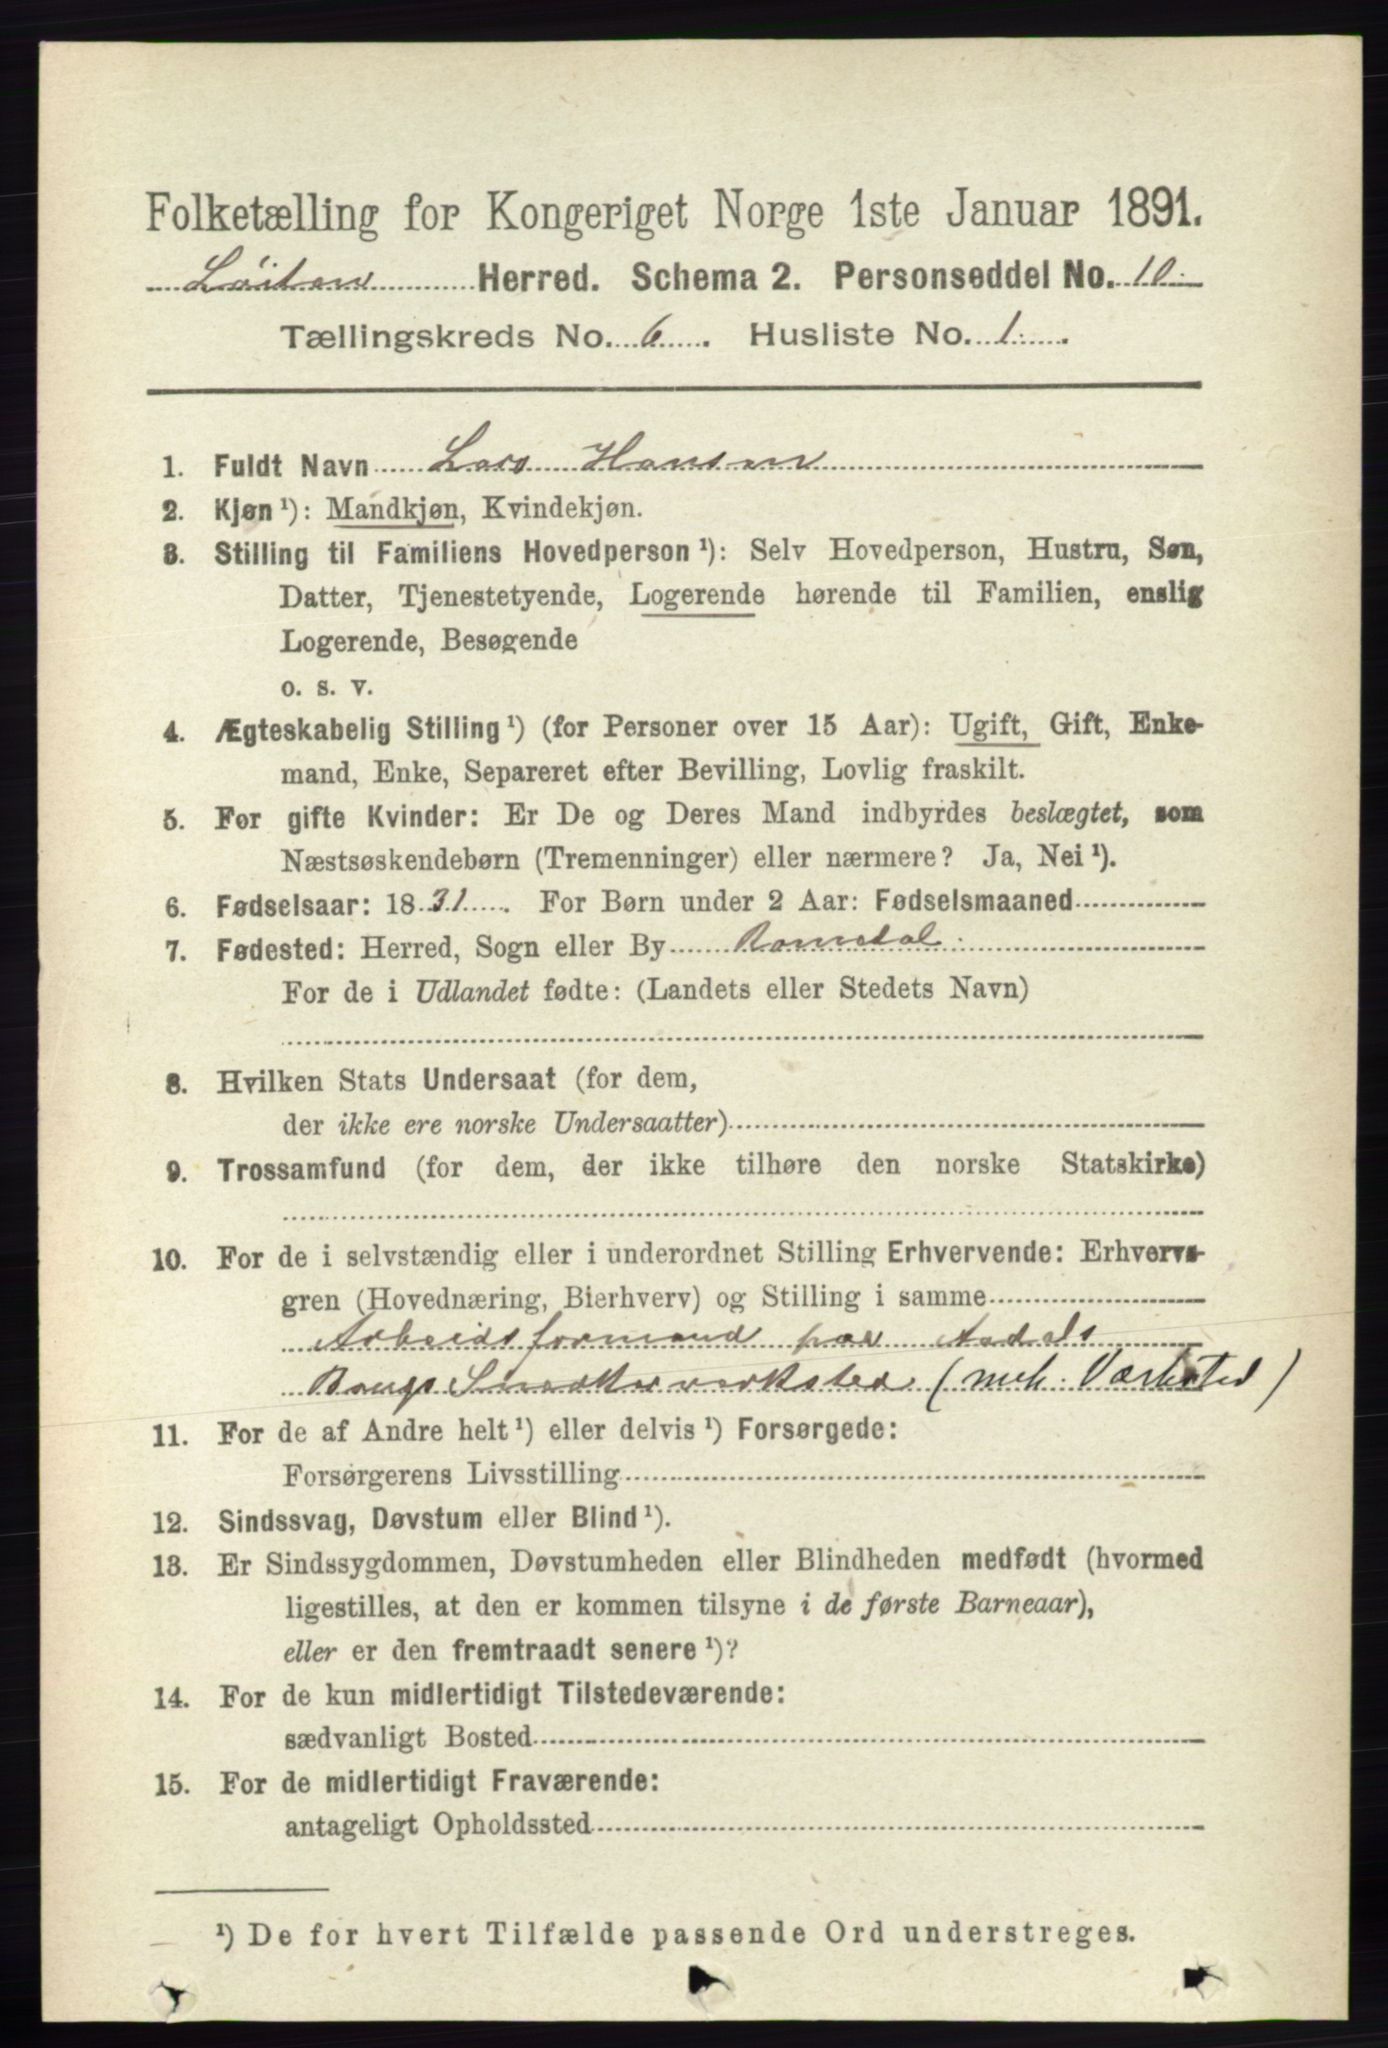 Folketælling for Kongeriget Norge 1ste Januar 1891.
Löiten Herred. Schema 2. Personseddel No. 10
Tællingskreds No. 6. Husliste No. 1.
1. Fuldt Navn Lars Hansen
2. Kjøn ¹): Mandkjøn, Kvindekjøn.
3. Stilling til Familiens Hovedperson ¹): Selv Hovedperson, Hustru, Søn,
Datter, Tjenestetyende, Logerende hørende til Familien, enslig
Logerende, Besøgende
o. s. v.
4. Ægteskabelig Stilling ¹) (for Personer over 15 Aar): Ugift, Gift, Enke-
mand, Enke, Separeret efter Bevilling, Lovlig fraskilt.
5. For gifte Kvinder: Er De og Deres Mand indbyrdes beslægtet, som
Næstsøskendebørn (Tremenninger) eller nærmere? Ja, Nei ¹).
6. Fødselsaar: 1831. For Børn under 2 Aar: Fødselsmaaned
7. Fødested: Herred, Sogn eller By Romedal
For de i Udlandet fødte: (Landets eller Stedets Navn)
8. Hvilken Stats Undersaat (for dem,
der ikke ere norske Undersaatter)
9. Trossamfund (for dem, der ikke tilhøre den norske Statskirke)
10. For de i selvstændig eller i underordnet Stilling Erhvervende: Erhvervs-
gren (Hovednæring, Bierhverv) og Stilling i samme
Arbeidsformand paa Aadals
Brugs Snedkerverksted (mek. Værksted)
11. For de af Andre helt ¹) eller delvis ¹) Forsørgede:
Forsørgerens Livsstilling
12. Sindssvag, Døvstum eller Blind ¹).
13. Er Sindssygdommen, Døvstumheden eller Blindheden medfødt (hvormed
ligestilles, at den er kommen tilsyne i de første Barneaar),
eller er den fremtraadt senere ¹)?
14. For de kun midlertidigt Tilstedeværende:
sædvanligt Bosted
15. For de midlertidigt Fraværende:
antageligt Opholdssted
¹) De for hvert Tilfælde passende Ord understreges.